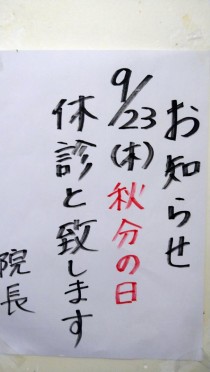 お知らせ
9/23(木)秋分の日
休診と致します
院長